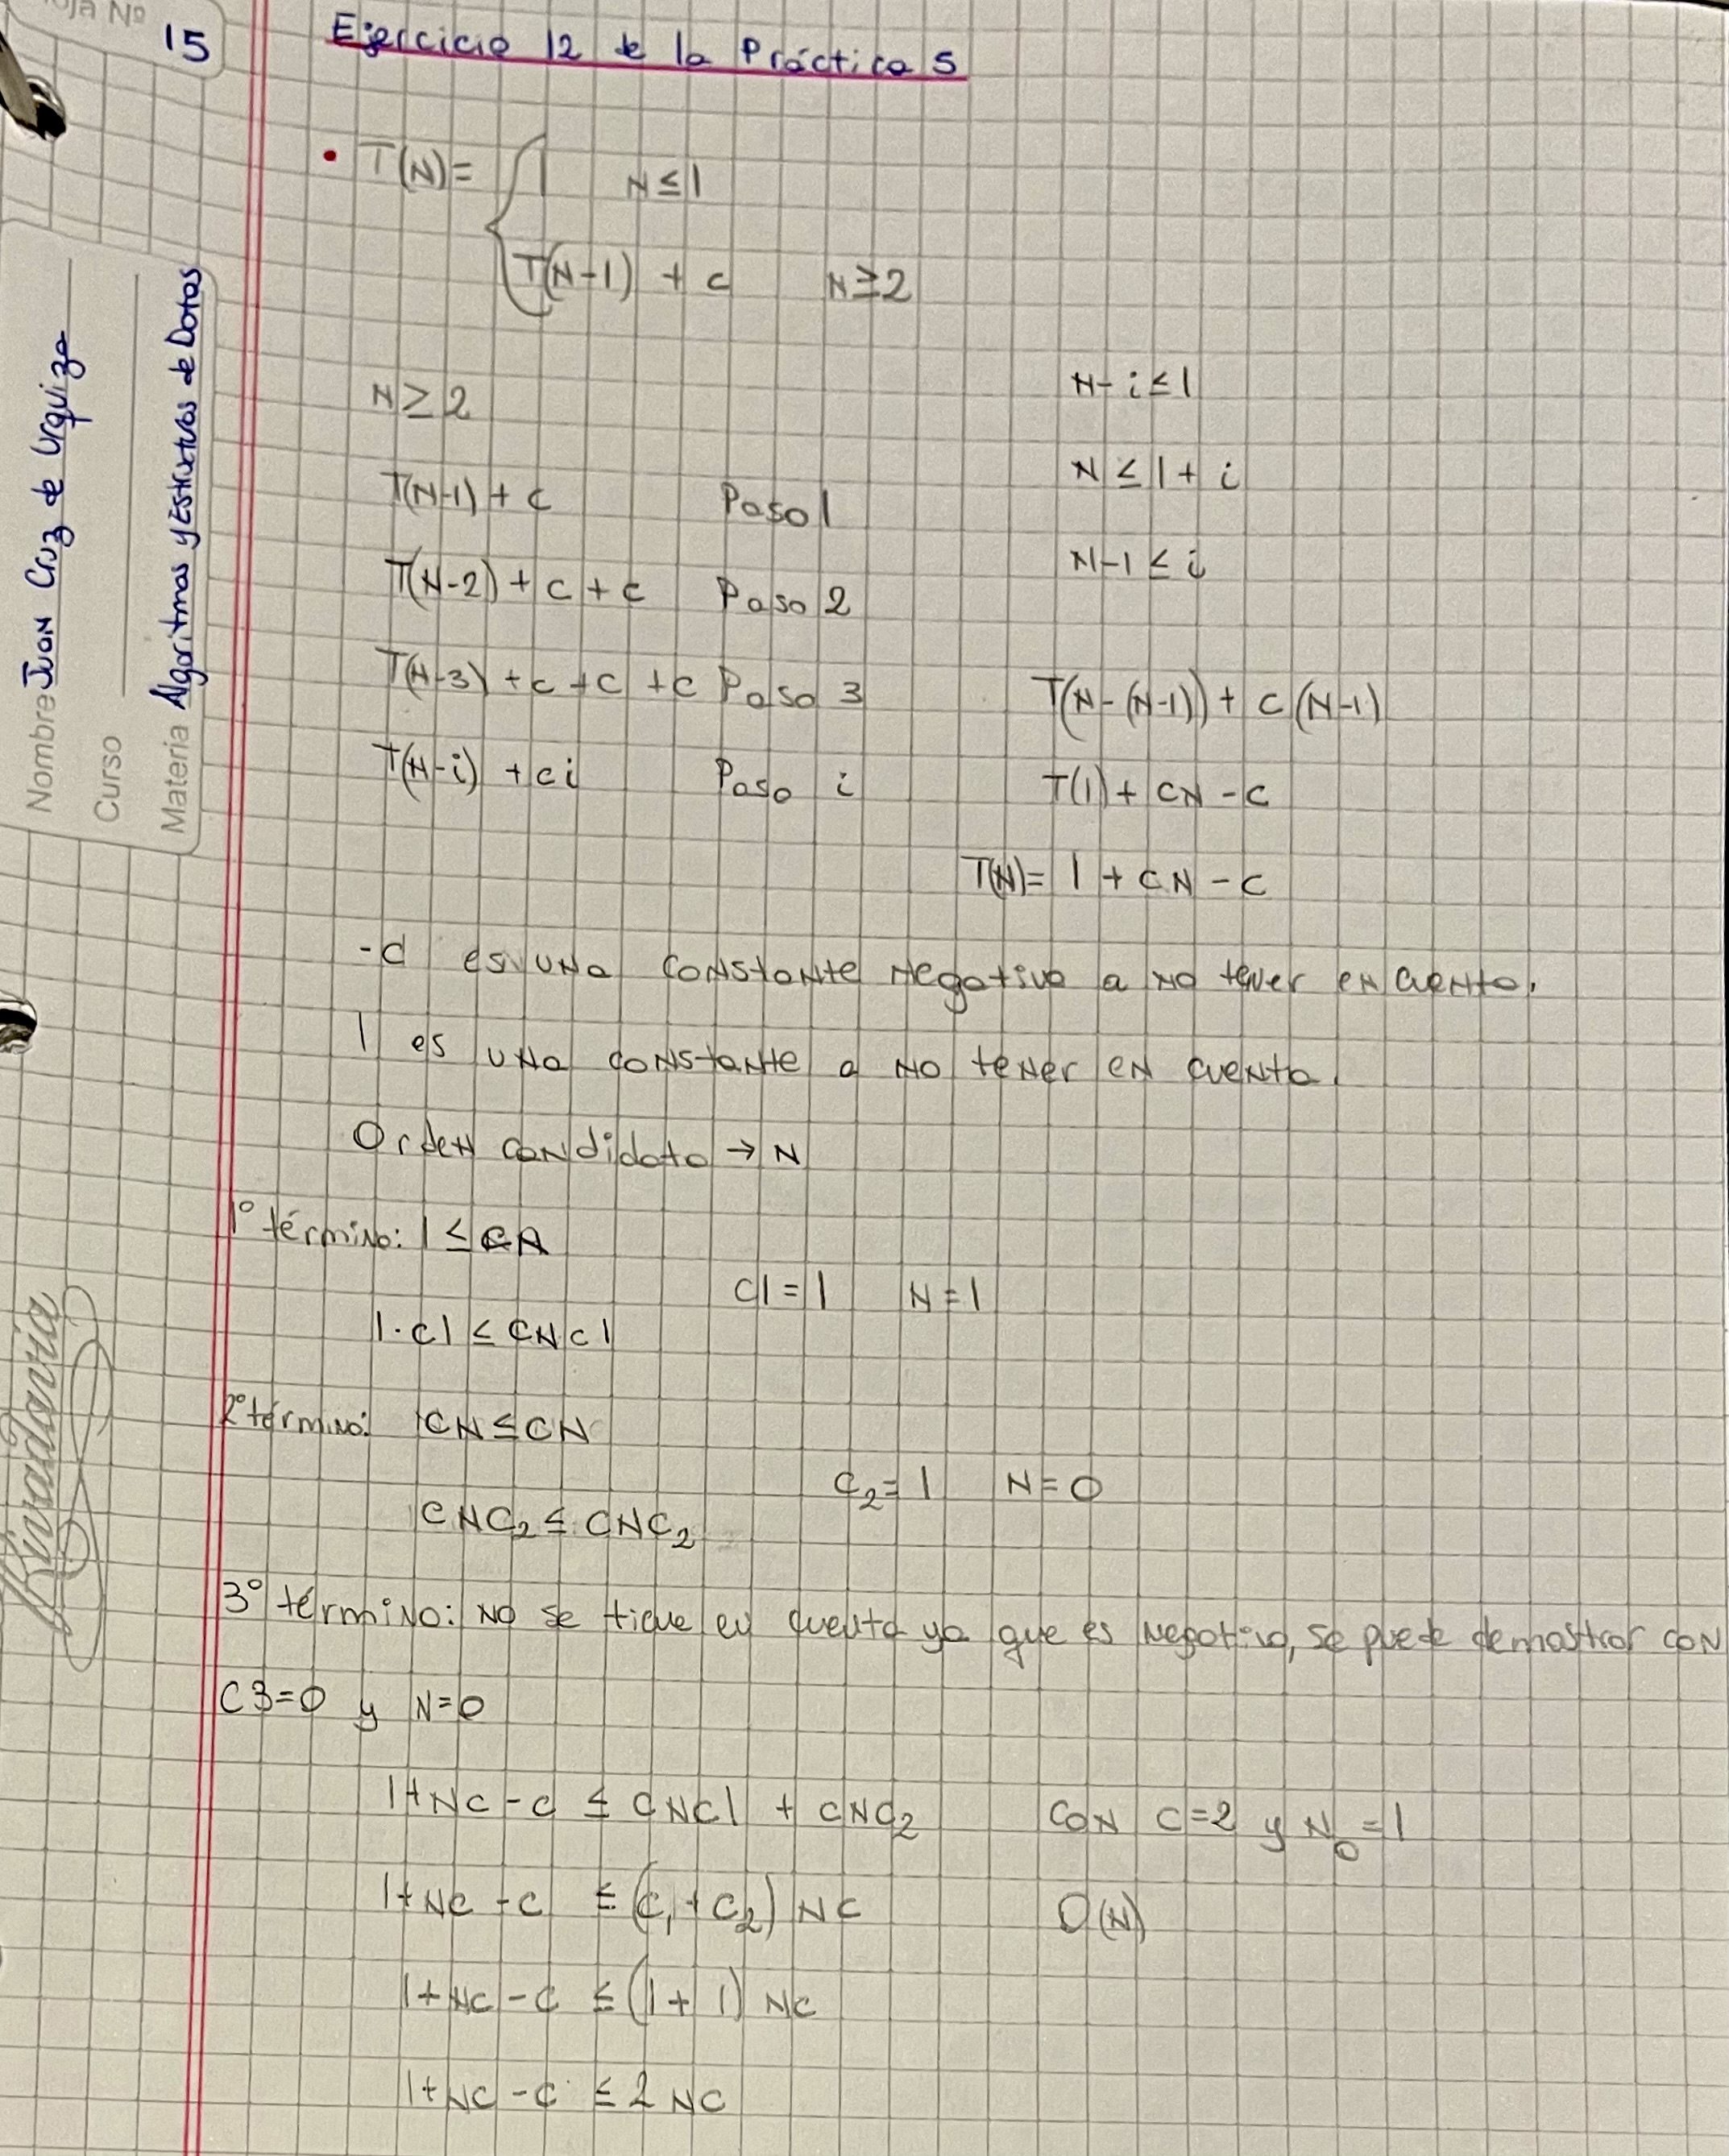 Hoja Nº 15
Nombre Juan Cruz de Urquiza
Curso
Materia Algoritmos y Estructuras de Datos
Rivadavia
Ejercicio 12 de la Práctica 5
• T(N) = { 1 N ≤ 1
T(N-1) + c N ≥ 2
N ≥ 2
T(N-1) + c Paso 1
T(N-2) + c + c Paso 2
T(N-3) + c + c + c Paso 3
T(N-i) + ci Paso i
N - i ≤ 1
N ≤ 1 + i
N-1 ≤ i
T(N-(N-1)) + c(N-1)
T(1) + cN - c
T(N) = 1 + cN - c
-c es una constante negativa a no tener en cuenta.
1 es una constante a no tener en cuenta.
Orden candidato → N
1º término: 1 ≤ cN
1·c1 ≤ cNc1 c1 = 1 N = 1
2º término: cN ≤ cN
cNc₂ ≤ cNc₂ c₂ = 1 N = 0
3º término: No se tiene en cuenta ya que es negativo, se puede demostrar con
c3=0 y N=0
1+Nc-c ≤ cNc1 + cNc₂ con c=2 y N₀=1
1+Nc-c ≤ (c₁+c₂) Nc O(N)
1+Nc-c ≤ (1+1) Nc
1+Nc-c ≤ 2Nc